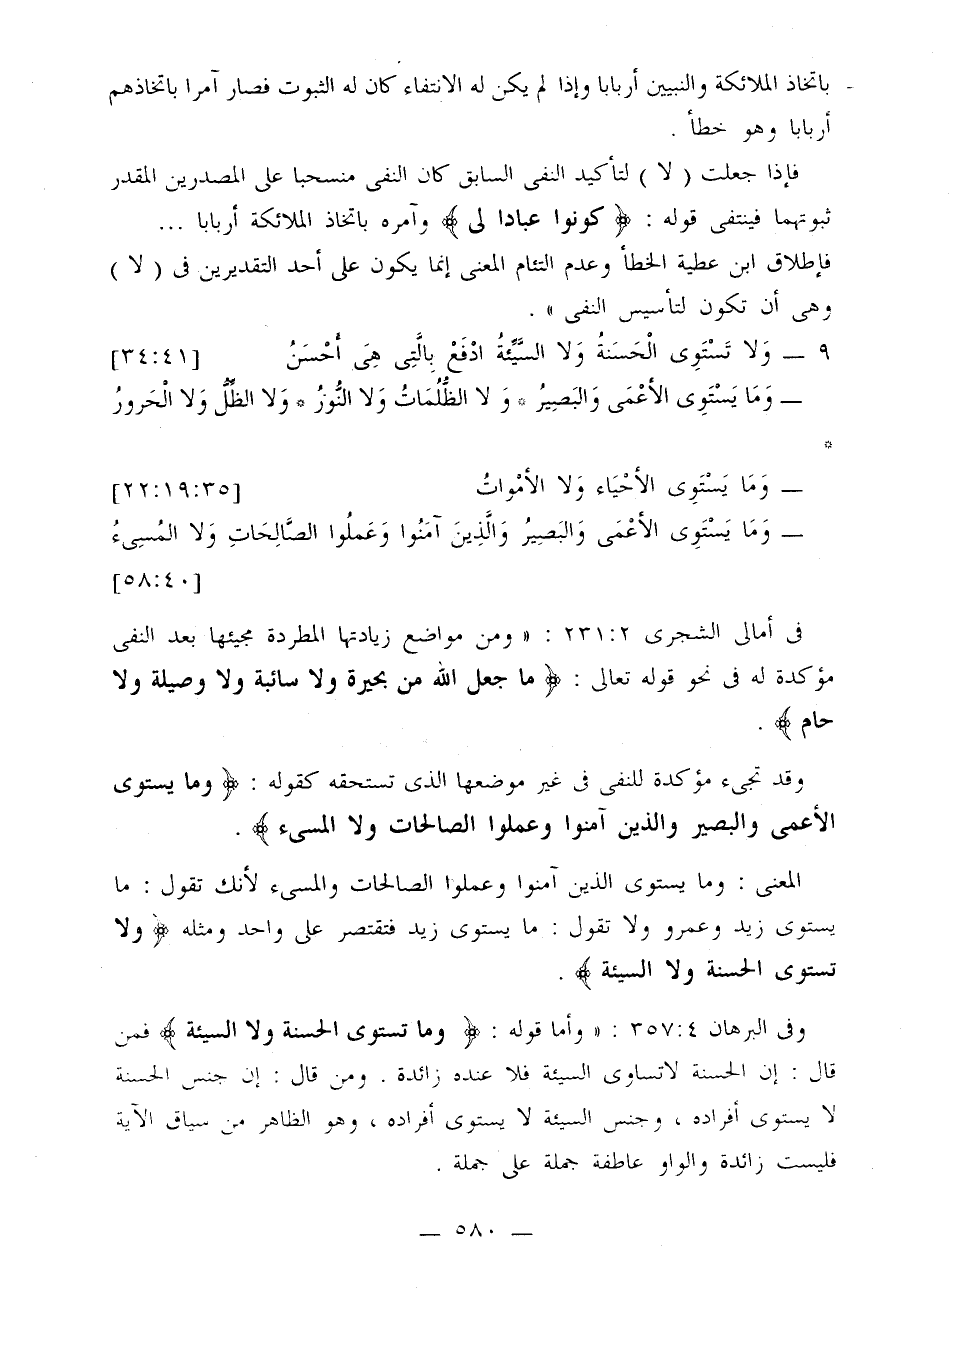 باتخاذ الملائكة والنبيين أربابا وإذا لم يكن له الانتفاء كان له الثبوت فصار آمرا باتخاذهم
أربابا وهو خطأ .
فإذا جعلت ( لا ) لتأكيد النفى السابق كان النفى منسحبا على المصدرين المقدر
ثبوتهما فينتفى قوله : ﴿ كونوا عبادا لى ﴾ وآمره باتخاذ الملائكة أربابا ...
فإطلاق ابن عطية الخطأ وعدم التئام المعنى إنما يكون على أحد التقديرين فى ( لا )
وهى أن تكون لتأسيس النفى » .
٩ — وَلا تَسْتَوِى الْحَسَنةُ وَلا السَّيِّئةُ ادْفَعْ بِالَّتِى هِىَ أَحْسَنُ [٣٤:٤١]
— وَمَا يَسْتَوِى الأَعْمَى وَالبَصِيرُ * وَ لا الظُّلُمَاتُ وَلا النُّورُ * وَلا الظِّلُّ وَلا الْحَرورُ
*
— وَمَا يَسْتَوِى الأَحْيَاء وَلا الأَمْواتُ [٢٢:١٩:٣٥]
— وَمَا يَسْتَوِى الأَعْمَى وَالبَصِيرُ وَالَّذِينَ آمَنُوا وَعَمِلُوا الصَّالِحَاتِ وَلا المُسِىءُ
[٥٨:٤٠]
فى أمالى الشجرى ٢٣١:٢ : « ومن مواضع زيادتها المطردة مجيئها بعد النفى
مؤكدة له فى نحو قوله تعالى : ﴿ ما جعل الله من بحيرة ولا سائبة ولا وصيلة ولا
حام ﴾ .
وقد تجىء مؤكدة للنفى فى غير موضعها الذى تستحقه كقوله : ﴿ وما يستوى
الأعمى والبصير والذين آمنوا وعملوا الصالحات ولا المسىء ﴾ .
المعنى : وما يستوى الذين آمنوا وعملوا الصالحات والمسىء لأنك تقول : ما
يستوى زيد وعمرو ولا تقول : ما يستوى زيد فتقتصر على واحد ومثله ﴿ ولا
تستوى الحسنة ولا السيئة ﴾ .
وفى البرهان ٣٥٧:٤ : « وأما قوله : ﴿ وما تستوى الحسنة ولا السيئة ﴾ فمن
قال : إن الحسنة لاتساوى السيئة فلا عنده زائدة . ومن قال : إن جنس الحسنة
لا يستوى أفراده ، وجنس السيئة لا يستوى أفراده ، وهو الظاهر من سياق الآية
فليست زائدة والواو عاطفة جملة على جملة .
— ٥٨٠ —